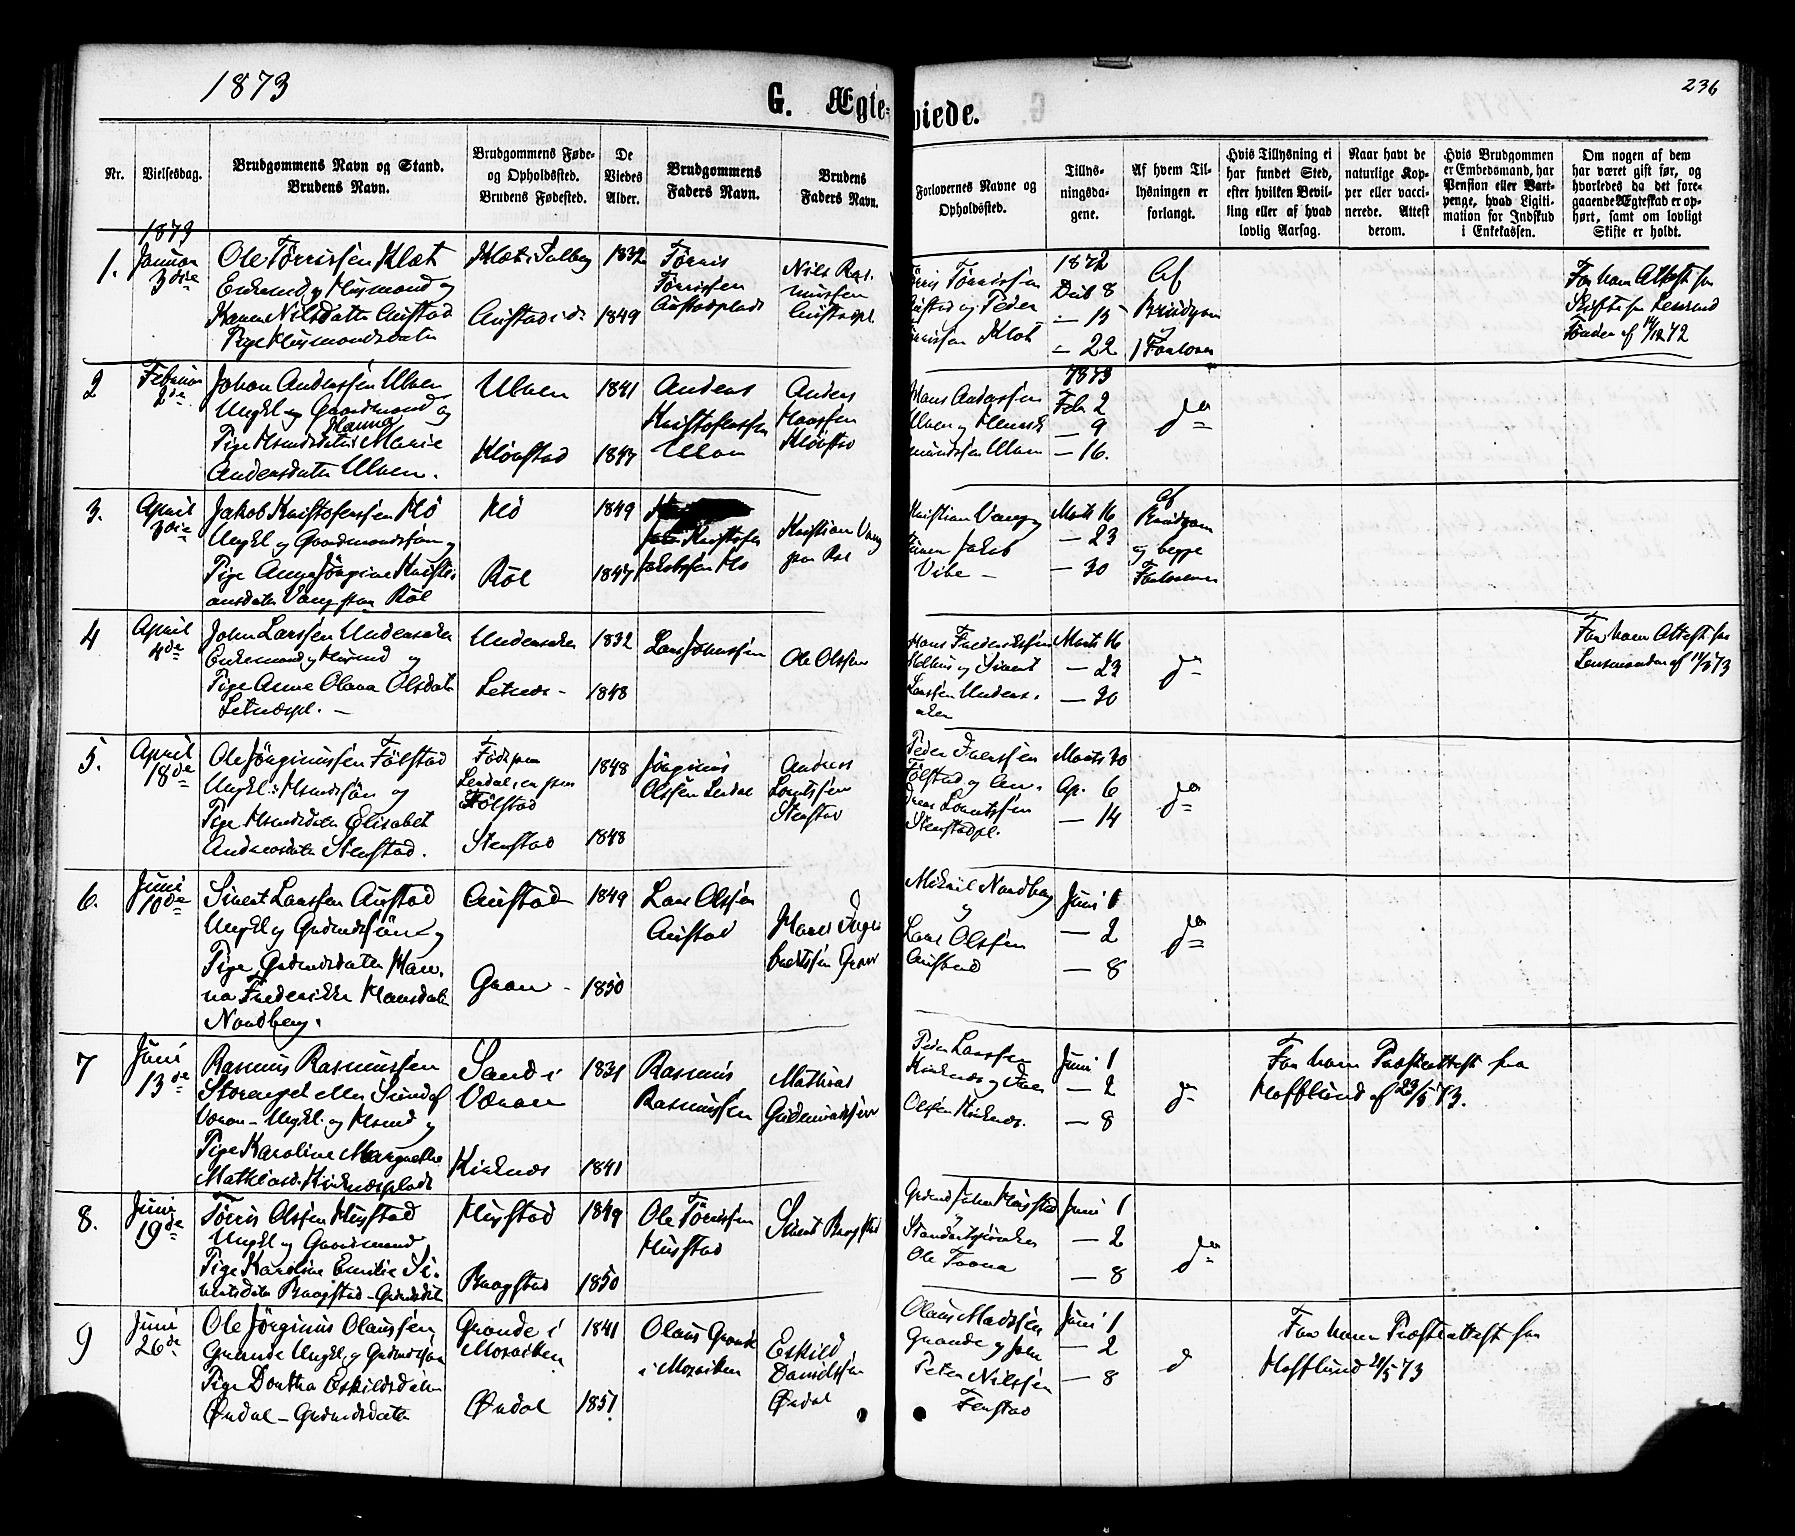 1873
236
G. Ægte-
viede.
Nr.
Vielsesdag.
Brudgommens Navn og Stand.
Brudens Navn.
Brudgommens Føde-
og Opholdssted.
Brudens Fødested.
De
Viedes
Alder.
Brudgommens
Faders Navn.
Brudens
Faders Navn.
Forlovernes Navne og
Opholdssted.
Tillys-
ningsda-
gene.
Af hvem Til-
lysningen er
forlangt.
Hvis Tillysning ei
har fundet Sted,
efter hvilken Bevil-
ling eller af hvad
lovlig Aarsag.
Naar havt de
naturlige Kop-
per eller vacci-
nerede. Attest
derom.
Hvis Brudgommen
er Embedsmand, har
Pension eller Vart-
penge, hvad Ligiti-
mation for Indskud
i Enkekassen.
Om nogen af dem
har været gift før, og
hvorledes da det fore-
gaaende Ægteskab er op-
hørt, samt om lovligt
Skifte er holdt.
1873
1.
Januar
3die
Ole Tørrissen Klæt
Enkemand og Husmand og
Karen Nilsdatter Austad
Pige Husmandsdatter
Klæt i
Austad
1832
1849
Tørris
Tørrissen
Austadplads
Nils Ras-
mussen
Austadpl.
Tørris Tørrissen
Austad og Peder
Tørrissen Klæt
1872
Decb 8
— 15
— 22
Af
Brudgom
/Forlover
For ham Attest fra
Skifte fra Lensmd
af 14/12 72
2
Februar
2de
Johan Anderssen Ulven
Ungkl og Gaardmand og
Pige Hsmdsdatter Hanna Marie
Andersdatter Ulven.
Ulven
Kløvstad
1841
1847
Anders
Kristoferssen
Ulven
Anders
Haassen
Kløvstad
Hans Anderssen
Ulven og Henrik
Ulven
1873
Feb 2
— 9
— 16.
do
3.
April
3die
Jakob Kristofersen Mo
Ungkl og Gaardmandssøn og
Pige Anne Jørgine Kristi-
ansdatter Vang fra Røl
Mo
Røl
1849
1847
Kristofer
Jakobssen Mo
Kristian Vang
fra Røl
Kristian Vang og
Jakob
Vibe —
Marts 16
— 23
— 30
af
Brudgom
og begge
Forlovere
4
April
4de
John Larssen Undersaker
Enkemand og Husmd og
Pige Anne Olava Olsdatter
Letnespl. —
Undersaker
Letnes —
1832
1848
Lars Johnssen
Ole Olssen
Hans Frederikssen
og Sivert
Larssen Unders-
aker
Marts 16
— 23
— 30
do
For ham Attest fra
Lensmanden af
5.
April
18de
Ole Jørginussen Følstad
Ungkl. Hsmdssøn og
Pige Hsmdsdatter Elisabet
Andreasdatter Stenstad.
Født paa
Lerdal, en paa
Følstad
Stenstad
1848
1848
Jørginus
Olssen Lerdal
Andreas
Lorntssen
Stenstad
Peder Iverssen
Følstad og An-
dreas Lorntssen
Stenstadpl.
Marts 30
Ap. 6
— 14
do
6.
Juni
10de
Sivert Larssen Austad
Ungkl og Grdmdssøn og
Pige Grdmdsdatter Han-
na Frederikke Hansdatter
Nordberg.
Austad
Gran —
1849
1850
Lars Olssen
Austad
Hans Inge-
brektssen Gran
Mikael Nordberg
og
Lars Olssen
Austad
Juni 1
— 2
— 8
do
7
Juni
13de
Rasmus Rasmussen
eller Sundaf
Væran — Ungkl. og Hsmd og
Pige Karoline Margrethe
Mathiasd. Kirknesplads
Sand i
Væran
Kirknes
1831
1841
Rasmus
Rasmussen
Mathias
Gudmundssen
Peder Larssen
Kirknes og Iver
Olsen Kirknes.
Juni 1
— 2
— 8
do
For ham Præsteattest fra
Hofflund af 23/5 73.
8.
Juni
19de
Tørris Olssen Husstad
Ungkl og Gaardmand
Pige Karoline Emilie Si-
vertsdatter Raagstad — Grdmdsdatter
Husstad
Raagstad
1849
1850
Ole Tørrissen
Husstad
Sivert Raagstad
Grdmd Johan Husstad
Ole
Juni 1
— 2
— 8
do
9
Juni
26de
Ole Jørginus Olaussen
Grande Ungkl. og Grdmdssøn
Pige Dorthea Eskildsdatter
Ørdal — Grdmdsdatter
Grande i
Mosviken
Ørdal
1841
1851
Olaus Grande
i Mosviken
Eskild
Danielssen
Ørdal
Olaus Madssen
Grande og
Peter Nilssen
Fenstad
Juni 1
— 2
— 8
d
For ham Præsteattest fra
Hofflund 21/5 73